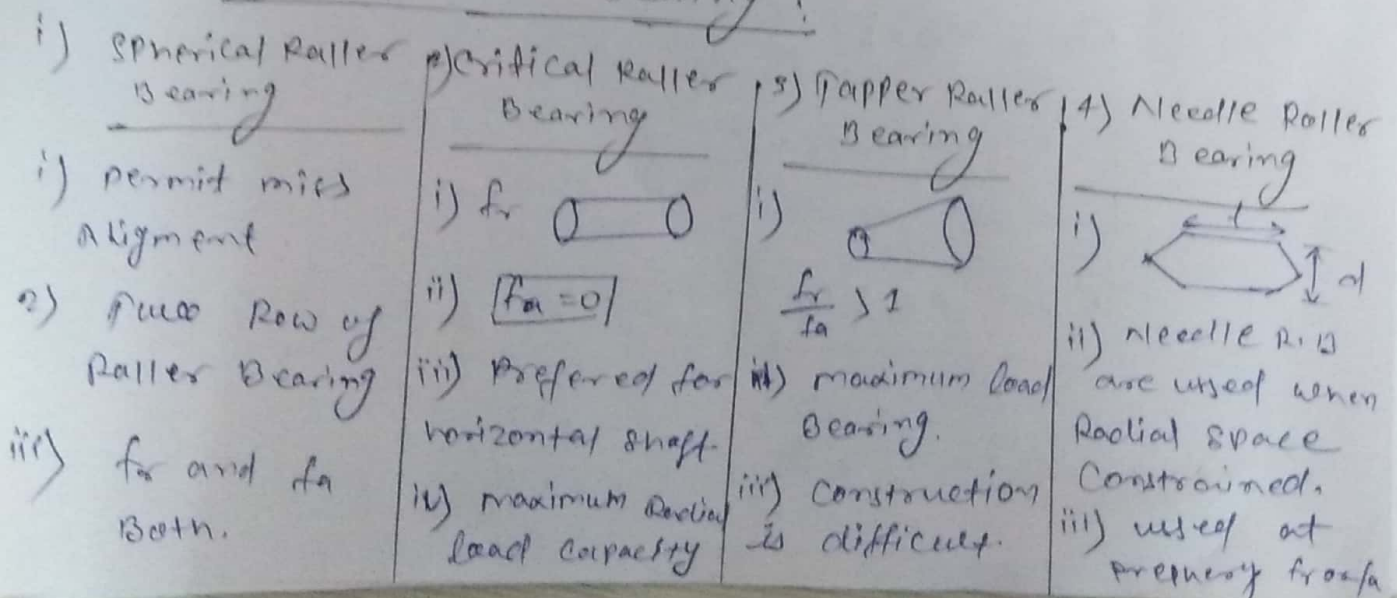 i) Spherical Raller
Bearing
i) permit miss
Aligment
2) Row of
Raller Bearing
iii) fr and fa
Booth.
2) Critical Raller
Bearing
i) fr
ii) fa = 0
iii) Prefered for
horizontal shaft.
iv) maximum Radial
load capacity
3) Tapper Raller
Bearing
i)
fr/fa > 1
ii) maximum load
Bearing.
iii) construction
is difficult.
4) Needle Roller
Bearing
i) l
d
ii) Needle R.B
are used when
Radial space
Constrained.
iii) used at
fr or fa